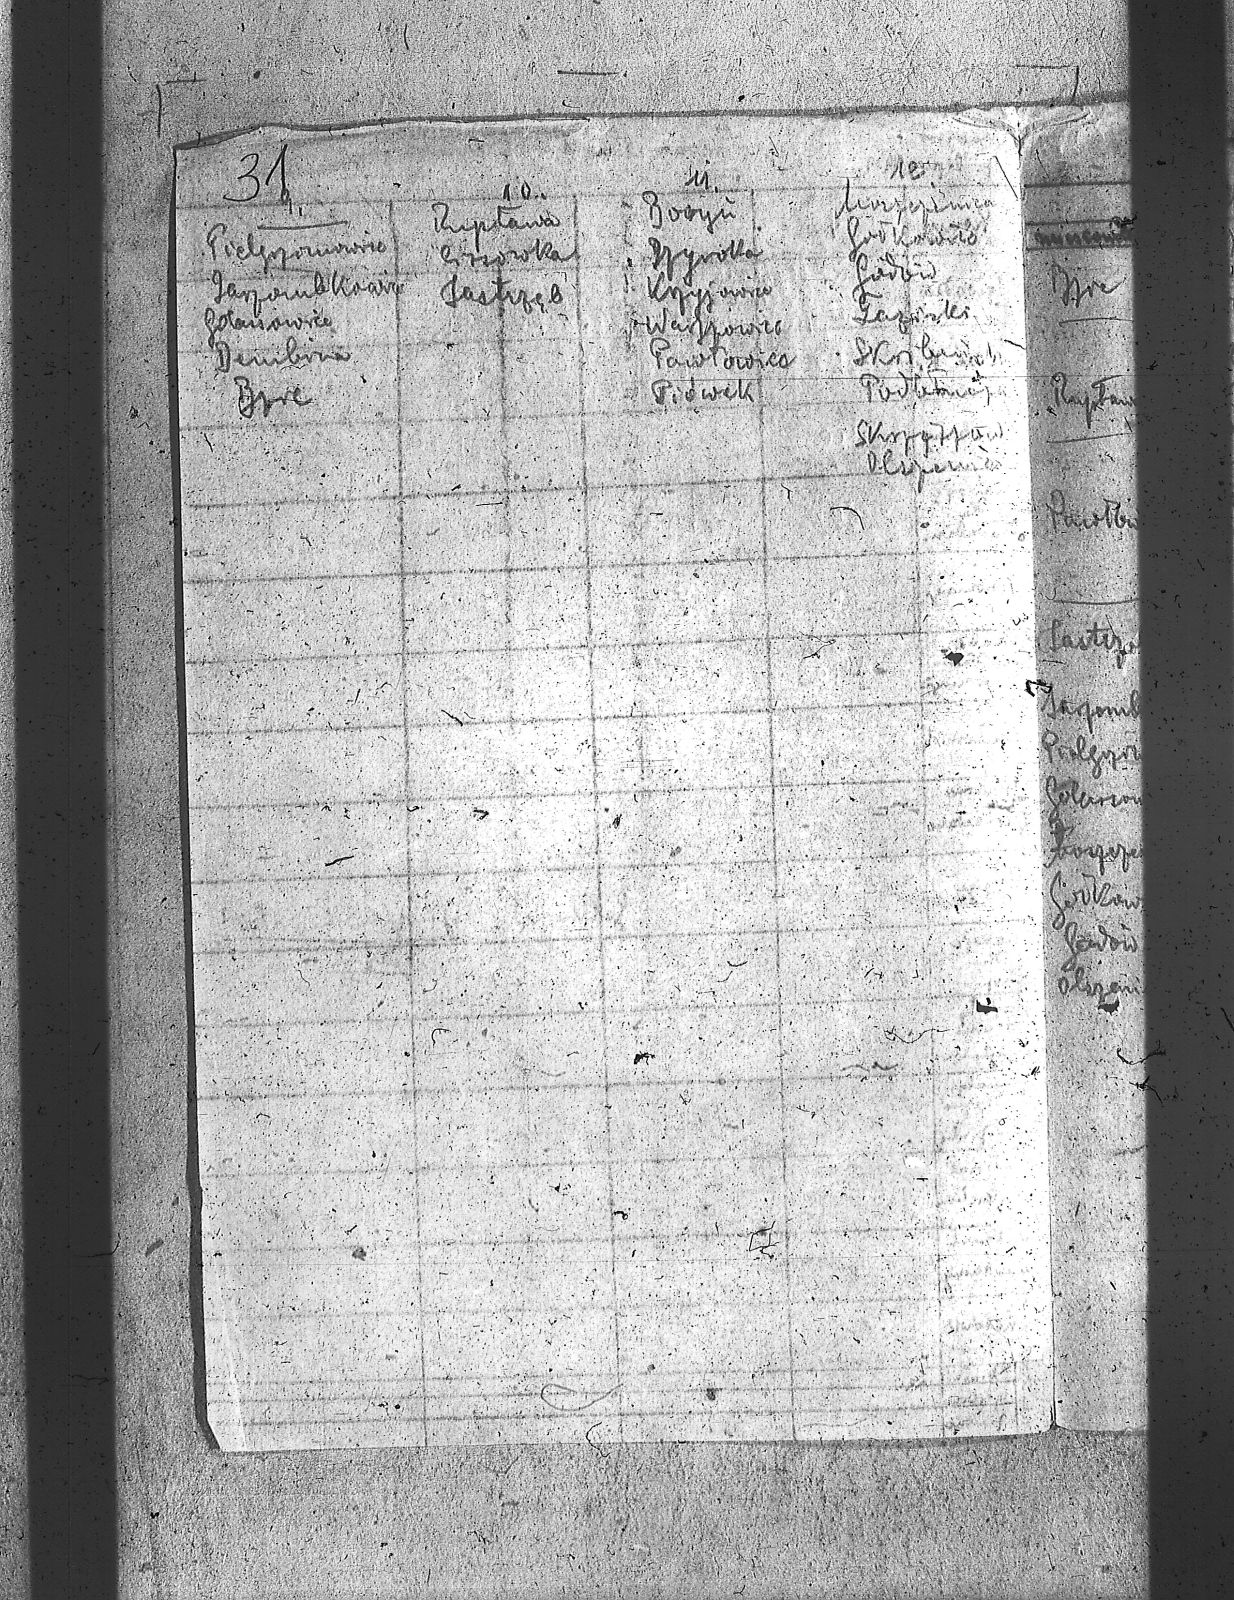 31
9.
Pielgrzymowice
Jarzombkowice
Golasowice
Dembina
Bzie
10.
Ruptawa
Cisówka
Jastrzęb
11.
Boryń
Szeroka
Krzyżowice
Warszowice
Pawłowice
Pniówek
12
Moszczenica
Gołkowice
Godów
Łaziska
Skrbeński
Podlesie
Skrzyszów
Olszenica
Bzie
Ruptaw
Pawłow
Jastrzę
Jarzomb
Pielgrzy
Golasow
Moszcze
Gołkow
Godów
Olszeni